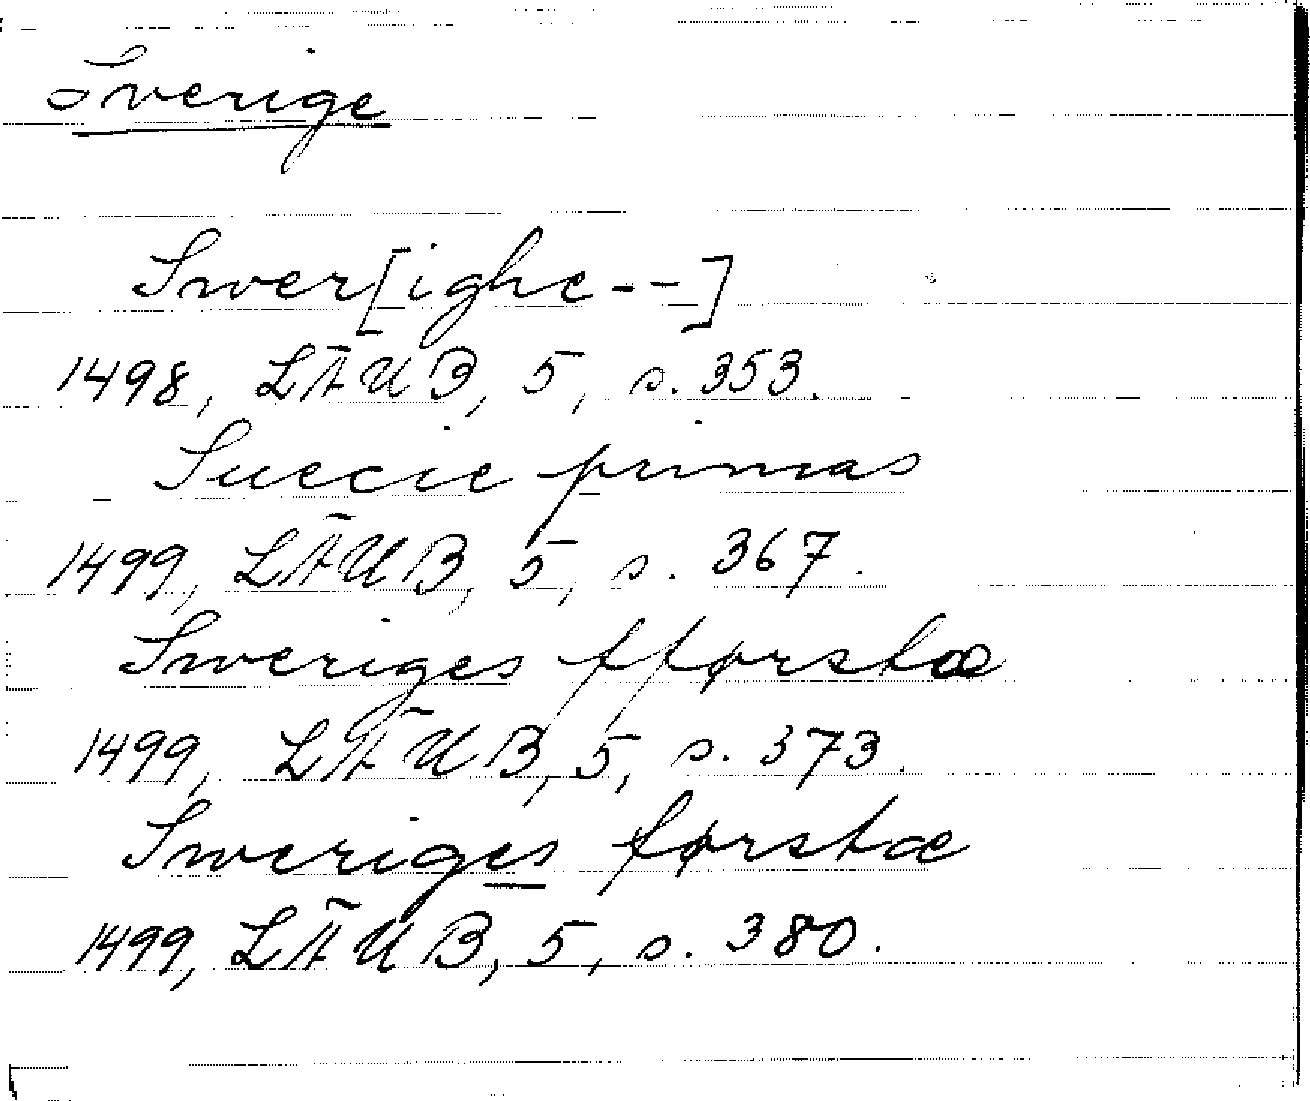 Sverige
Swer[ighe---]
1498, LÄUB, 5, s. 353.
Suecie primas
1499, LÄUB, 5, s. 367.
Sweriges fførstæ
1499, LÄUB, 5, s. 373.
Sweriges førstæ
1499, LÄUB, 5, s. 380.